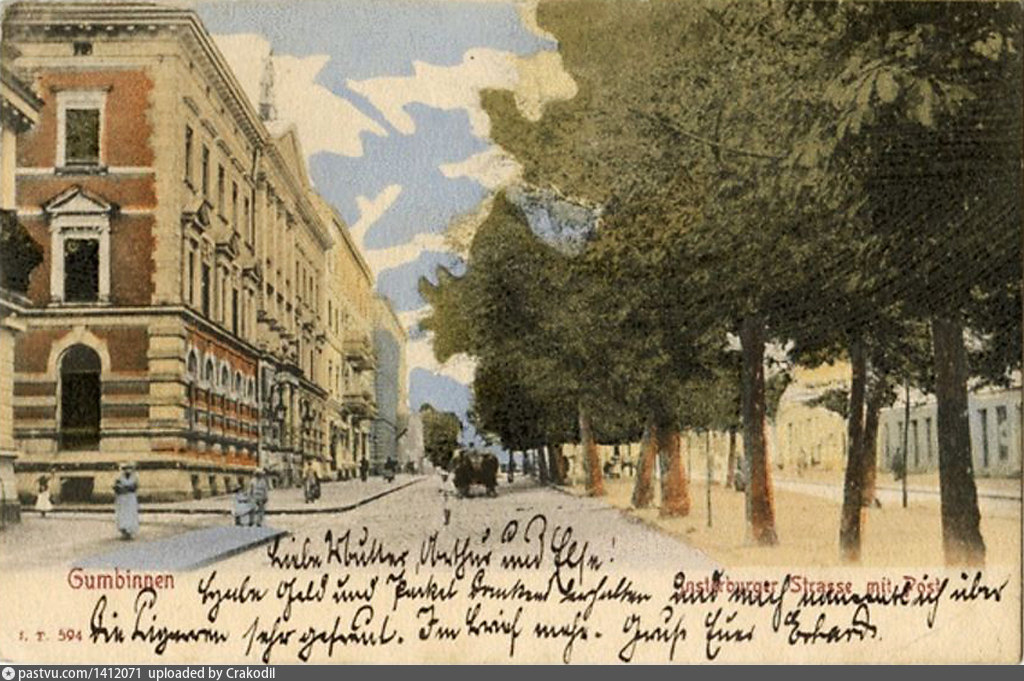 Liebe Mutter, Arthur und Else!
Gumbinnen
Insterburger Strasse mit Post
Habe Geld und Paket dankend erhalten und mich namentlich über
die Zigarren sehr gefreut. Im Brief mehr. Gruß Euer Erhard.
I. T. 594
pastvu.com/1412071 uploaded by Crakodil